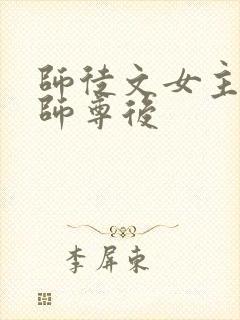 師徒文女主
師尊後
李屏東